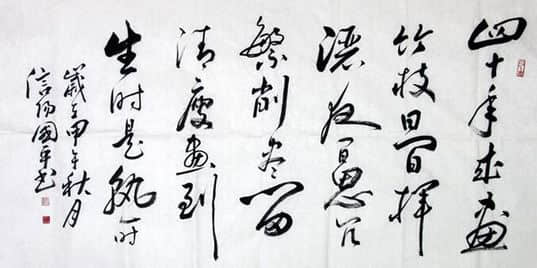 四十年来畫
竹枝日間揮
洒夜間思冗
繁削尽留
清瘦畫到
生时是孰时
歲在甲午秋月
信陽國平书